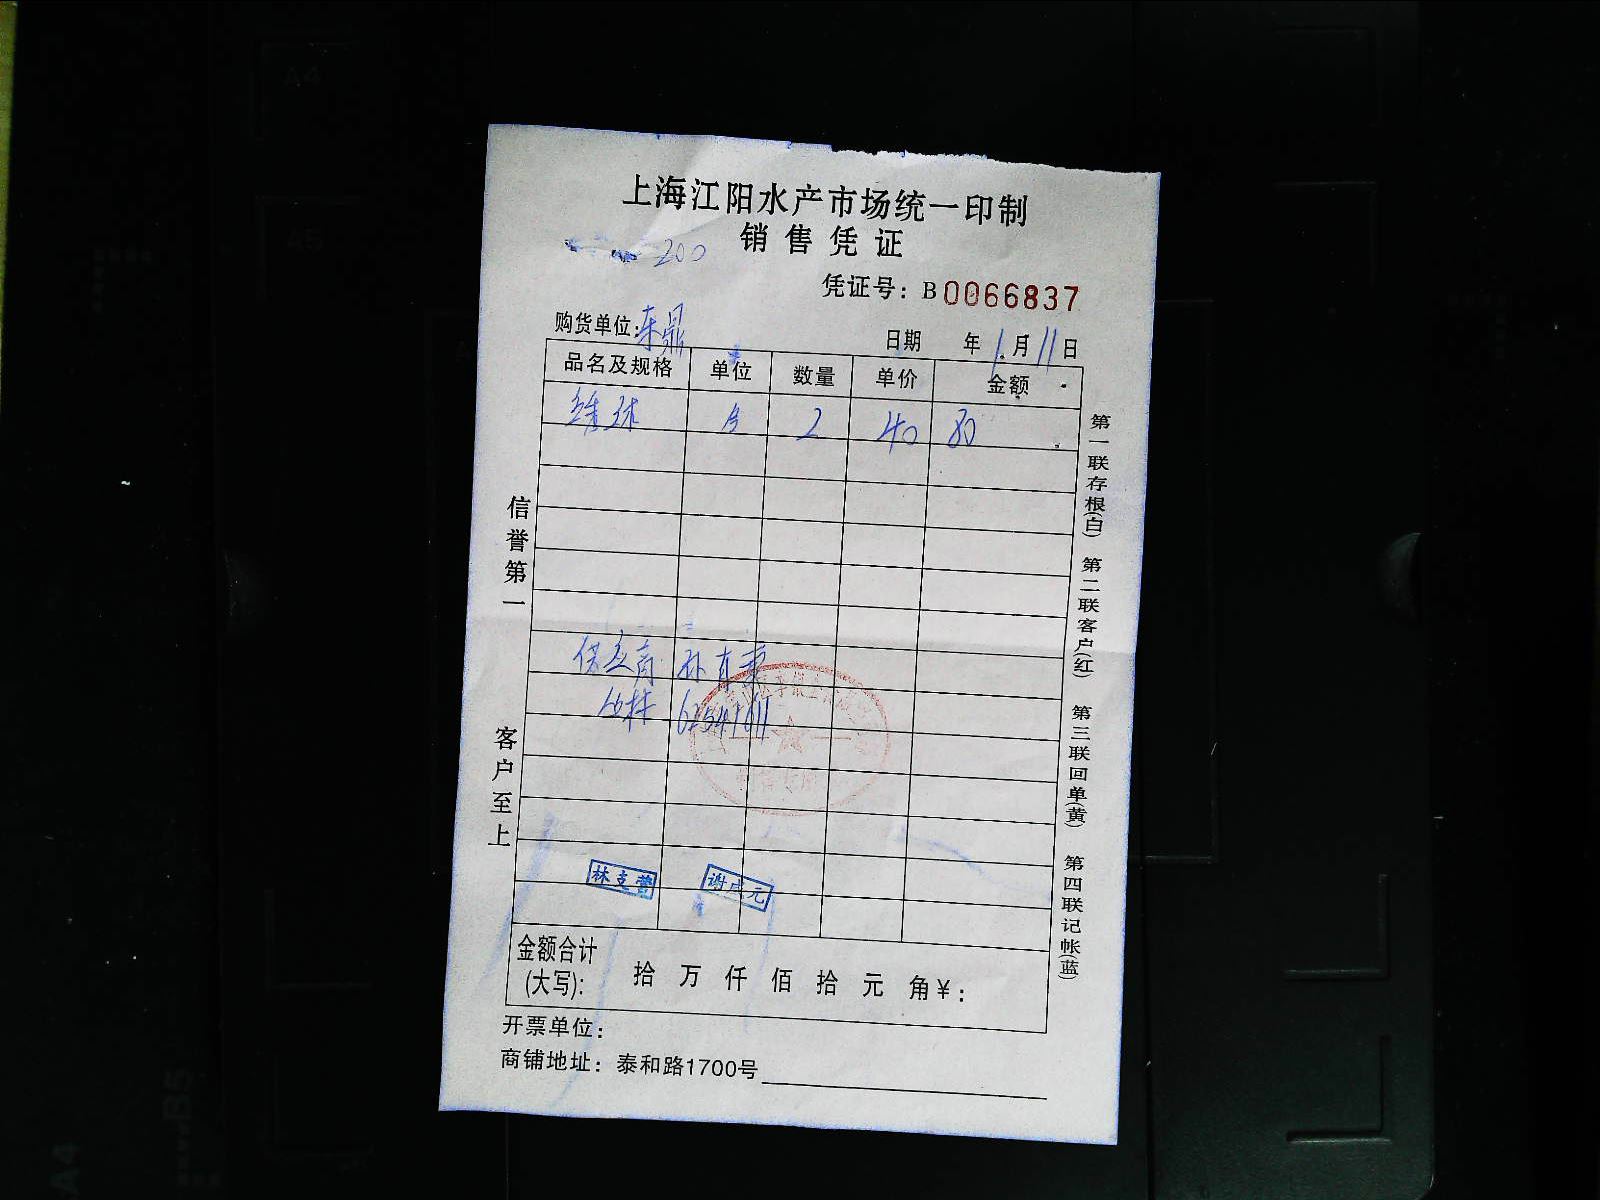 上海江阳水产市场统一印制
销售凭证
200
凭证号：B0066837
购货单位:东鼎
日期 年1月11日
品名及规格 单位 数量 单价 金额
2 40 80
供应商
林支营 谢成元
金额合计(大写): 拾 万 仟 佰 拾 元 角¥:
开票单位:
商铺地址：泰和路1700号
信誉第一 客户至上
第一联存根(白) 第二联客户(红) 第三联回单(黄) 第四联记帐(蓝)
A4
A5
B5
A4